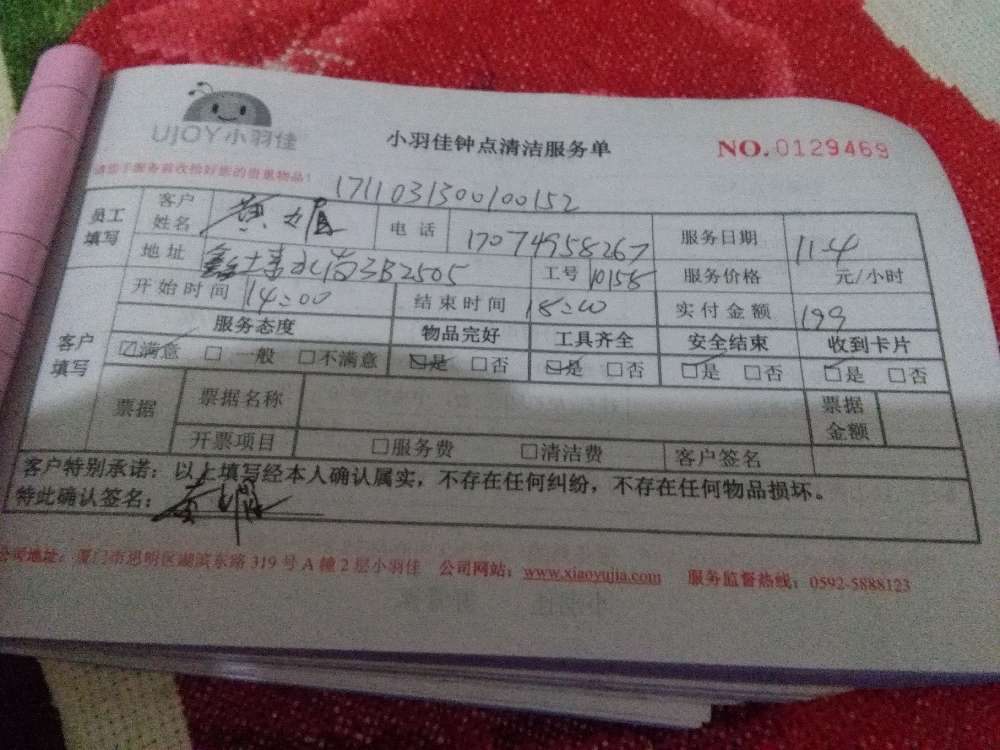 UJOY小羽佳
小羽佳钟点清洁服务单
NO.0129469
请您于服务前收拾好您的贵重物品!
1711031300100152
员工填写 客户姓名 黄 电话 17074958267 服务日期 11-4
地址 水岸3B2505 工号 10158 服务价格 元/小时
客户填写 开始时间 14:00 结束时间 18:00 实付金额 199
服务态度 物品完好 工具齐全 安全结束 收到卡片
☑满意 □一般 □不满意 ☑是 □否 ☑是 □否 ☑是 □否 ☑是 □否
票据 票据名称 票据金额
开票项目 □服务费 □清洁费 客户签名
客户特别承诺:以上填写经本人确认属实,不存在任何纠纷,不存在任何物品损坏。
特此确认签名:
公司地址:厦门市思明区湖滨东路319号A幢2层小羽佳 公司网站:www.xiaoyujia.com 服务监督热线:0592-5888123